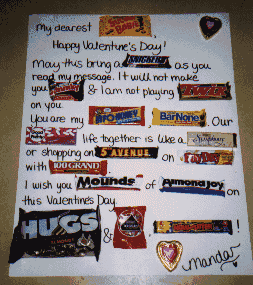 My dearest Sugar Babies,
Happy Valentine's Day!
May this bring a SNICKERS as you
read my message. It will not make
you & I am not playing
on you.
You are my BIG HUNK, BarNone. Our
life together is like a Symphony
or shopping on 5th AVENUE on
with 100 GRAND.
I wish you Mounds of Almond Joy on
this Valentine's Day.
HUGS & !
Mandar